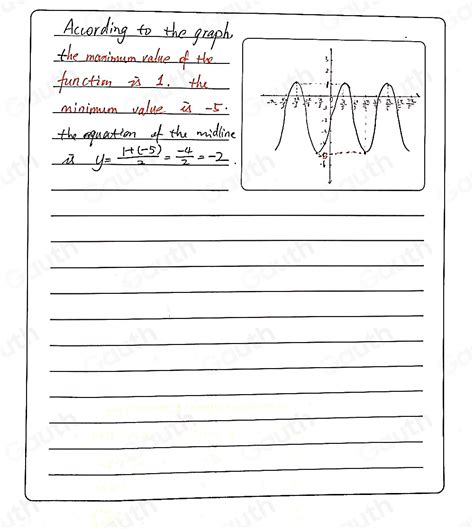 According to the graph,
the maximum value of the
function is 1. the
minimum value is -5.
the equation of the midline
is y = 1+(-5)/2 = -4/2 = -2.